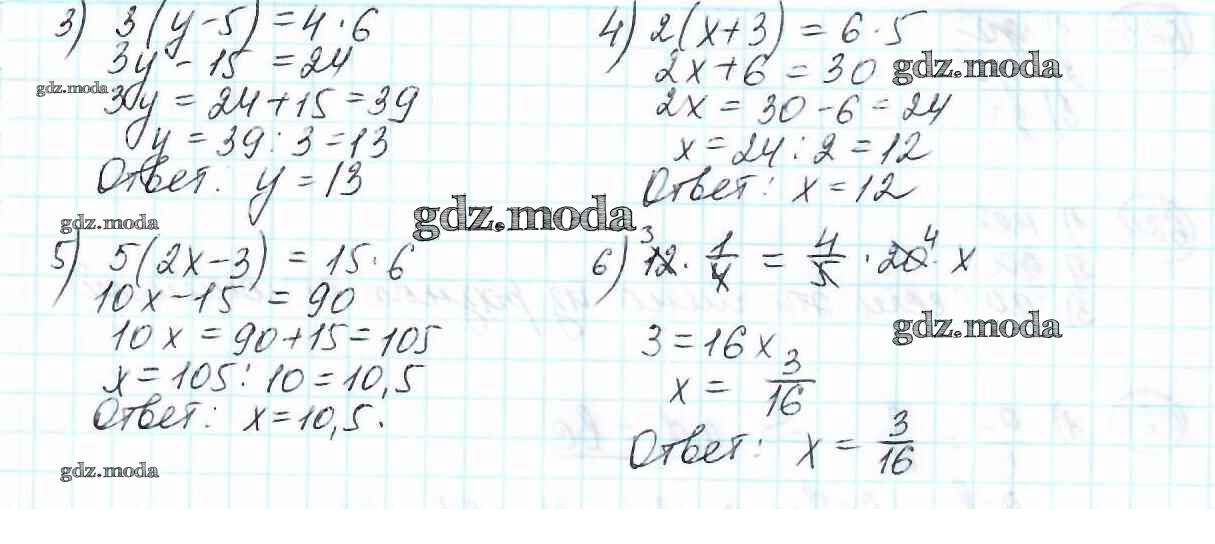 3) 3(y-5) = 4·6
3y - 15 = 24
gdz.moda
3y = 24+15 = 39
y = 39 : 3 = 13
Ответ: y = 13
4) 2(x+3) = 6·5
2x+6 = 30
gdz.moda
2x = 30-6 = 24
x = 24 : 2 = 12
Ответ: x = 12
gdz.moda
gdz.moda
5) 5(2x-3) = 15·6
10x-15 = 90
10x = 90+15 = 105
x = 105 : 10 = 10,5
Ответ: x = 10,5.
gdz.moda
6) 12 3 · 1/4 = 4/5 · 20 4 · x
gdz.moda
3 = 16x
x = 3/16
Ответ: x = 3/16